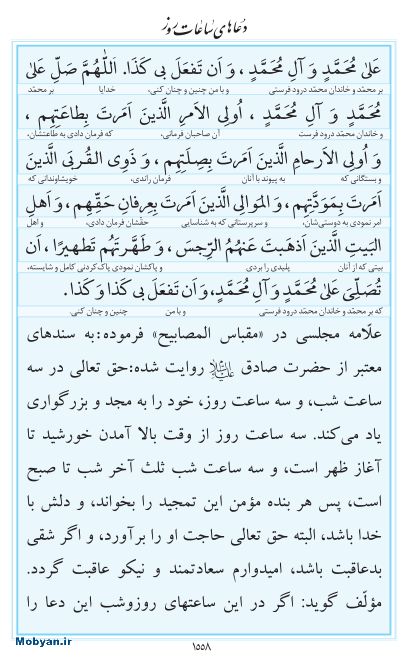 دعاهای ساعات روز
عَلىٰ مُحَمَّدٍ وَ آلِ مُحَمَّدٍ ، وَ اَن تَفعَلَ بى كَذَا. اَللّٰهُمَّ صَلِّ عَلىٰ
بر محمّد و خاندان محمّد درود فرستی و با من چنین و چنان کنی، خدایا بر محمّد
مُحَمَّدٍ وَ آلِ مُحَمَّدٍ ، اُولِى الاَمرِ الَّذينَ اَمَرتَ بِطاعَتِهِم ،
و خاندان محمّد درود فرست آن صاحبان فرمانی، که فرمان دادی به طاعتشان،
وَ اُولِى الاَرحامِ الَّذينَ اَمَرتَ بِصِلَتِهِم ، وَ ذَوِى القُربَى الَّذينَ
و بستگانی که به پیوند با آنان فرمان راندی، خویشاوندانی که
اَمَرتَ بِمَوَدَّتِهِم ، وَ المَوالِى الَّذينَ اَمَرتَ بِعِرفانِ حَقِّهِم ، وَ اَهلِ
امر نمودی به دوستی‌شان، و سرپرستانی که به شناسایی حقّشان فرمان دادی، و اهل
البَيتِ الَّذينَ اَذهَبتَ عَنهُمُ الرِّجسَ ، وَ طَهَّرتَهُم تَطهيرًا ، اَن
بیتی که از آنان پلیدی را بردی و پاکشان نمودی پاک‌کردنی کامل و شایسته،
تُصَلِّىَ عَلىٰ مُحَمَّدٍ وَ آلِ مُحَمَّدٍ، وَ اَن تَفعَلَ بى كَذا وَ كَذا.
که بر محمّد و خاندان محمّد درود فرستی و با من چنین و چنان کنی.
علّامه مجلسی در «مقباس المصابیح» فرموده: به سندهای
معتبر از حضرت صادق علیه‌السلام روایت شده: حق تعالی در سه
ساعت شب، و سه ساعت روز، خود را به مجد و بزرگواری
یاد می‌کند. سه ساعت روز از وقت بالا آمدن خورشید تا
آغاز ظهر است، و سه ساعت شب ثلث آخر شب تا صبح
است، پس هر بنده مؤمن این تمجید را بخواند، و دلش با
خدا باشد، البته حق تعالی حاجت او را برآورد، و اگر شقی
بدعاقبت باشد، امیدوارم سعادتمند و نیکو عاقبت گردد.
مؤلّف گوید: اگر در این ساعتهای روزوشب این دعا را
Mobyan.ir
۱۵۵۸